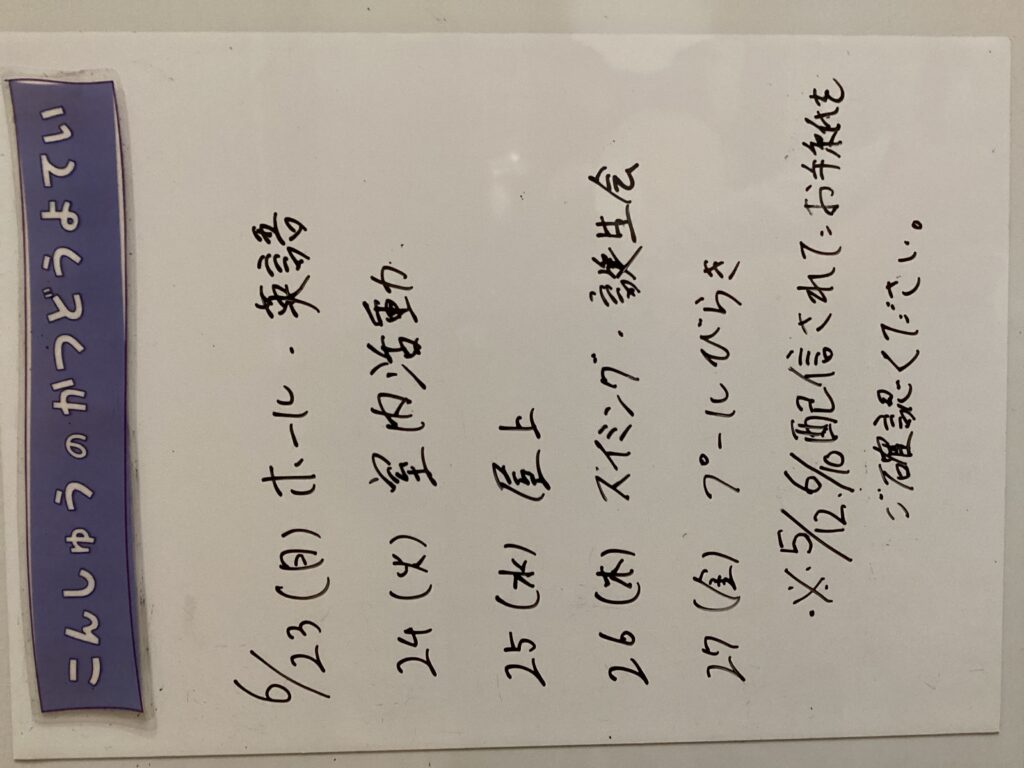 こんしゅうのかつどうよてい
6/23(月) ホール・英語
24(火)室内活動
25(水) 屋上
26(木) スイミング・誕生会
27(金) プールびらき
・※5/12.6/10配信されたお手紙を
ご確認ください。